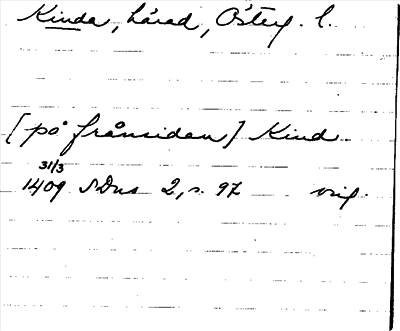 Kinda, härad, Österg. l.
[på frånsidan] Kind
31/3
1409 SDns 2, s. 97 orig.